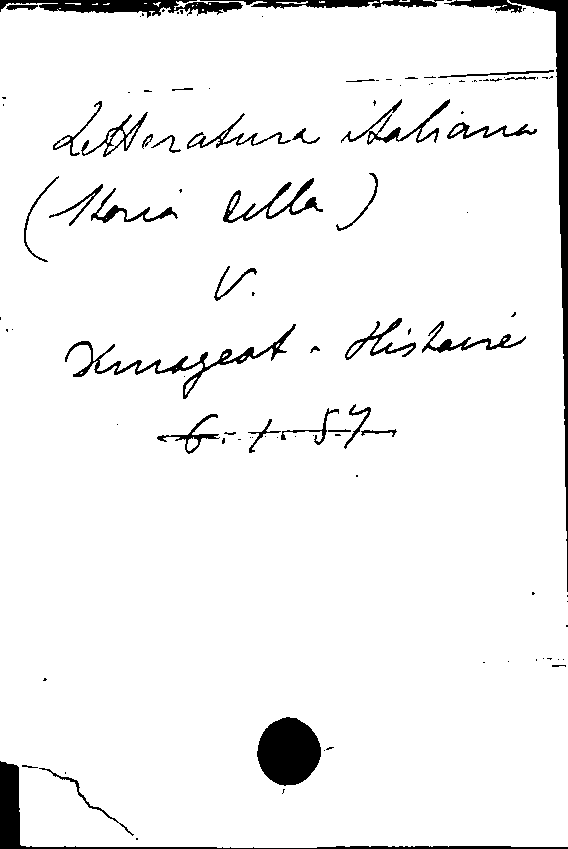 Letteratura italiana
(Storia della)
V.
Histoire
6. 1. 57